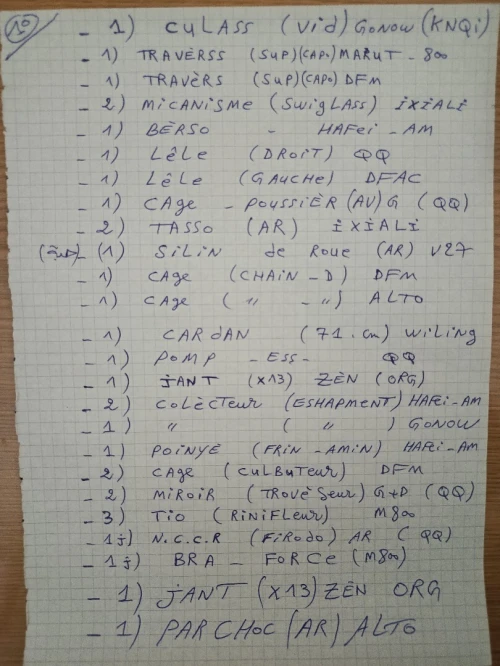 10
- 1) CULASS (Vid) GONOW (KNQi)
- 1) TRAVERSS (SuP)(CAPo) MARUT - 800
- 1) TRAVÈRS (SuP)(CAPo) DFM
- 2) MiCANiSME (SWigLASS) iXiALi
- 1) BERSO - HAFEi - AM
- 1) LÊLE (DROiT) QQ
- 1) LÊLE (GAUCHE) DFAC
- 1) CAge - POUSSiÈR (AV) G (QQ)
- 2) TASSO (AR) iXiALi
- (1) SiLiN de Roue (AR) V27
- 1) CAge (CHAiN - D) DFM
- 1) CAge ( " - " ) ALTO
- 1) CARdAN (71.cm) WiLiNg
- 1) POMP - ESS - QQ
- 1) jANT (X13) ZÈN (ORG)
- 2) COLÈCTEUR (ESHAPMENT) HAFEi-AM
- 1) " ( " ) GONOW
- 1) POiNYÉ (FRiN - AMiN) HAFEi-AM
- 2) CAGE (CULBUTEUR) DFM
- 2) MiROiR (TROVÈSEUR) G+D (QQ)
- 3) TiO (RiNiFLEUR) M800
- 1j) N.C.C.R (FiRodo) AR (QQ)
- 1j) BRA - FORCE (M800)
- 1) jANT (X13) ZÈN ORG
- 1) PARCHOC (AR) ALTO